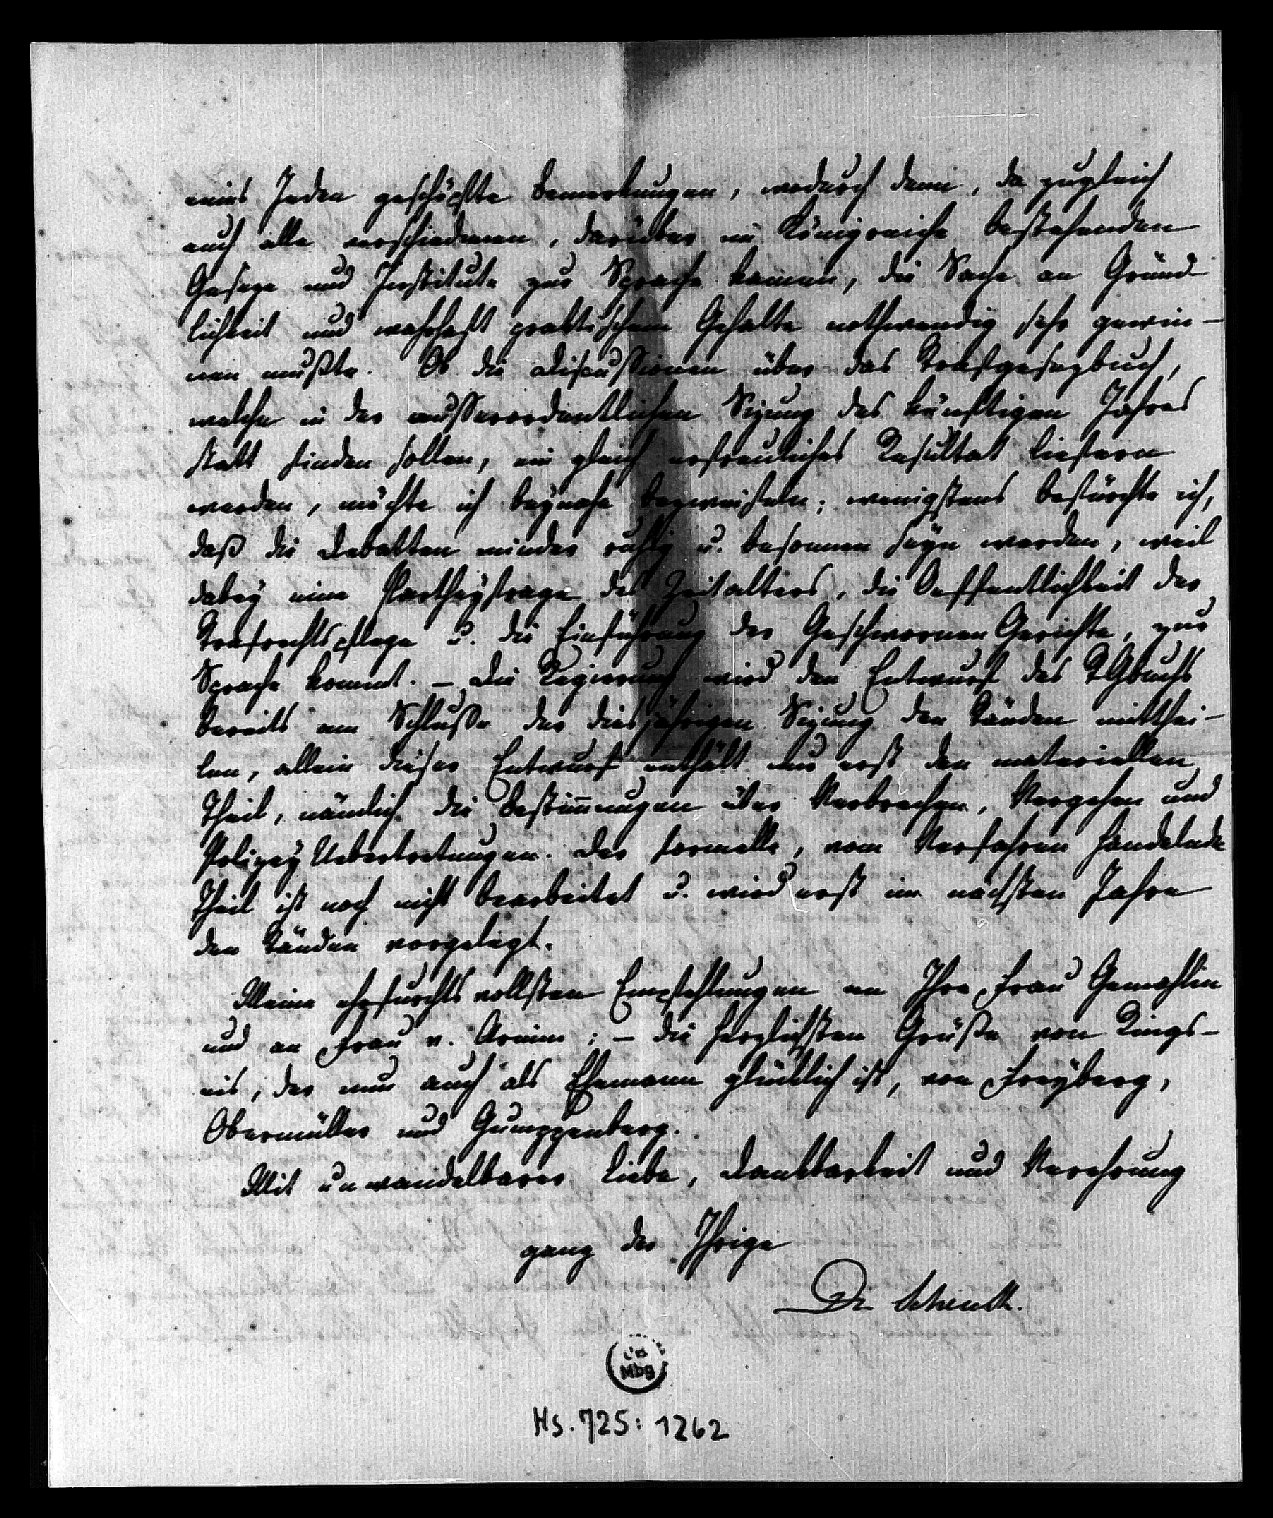 eines Jeden geschöpfte Bemerkungen, wodurch denn, da zugleich
auch alle verschiedenen, darüber im Königreiche bestehenden
Gesetze und Institute zur Sprache kamen, die Sache an Gründ-
lichkeit und wahrhaft praktischem Gehalte nothwendig sehr gewin-
nen mußte. Ob die Discussionen über das Strafgesezbuch,
welche in der ausserordentlichen Sizung des künftigen Jahres
statt finden sollen, ein gleich erfreuliches Resultat liefern
werden, möchte ich beynahe bezweifeln; wenigstens befürchte ich,
daß die Debatten minder ruhig u. besonnen seyn werden, weil
dabey eine Partheyfrage des Zeitalters, die Oeffentlichkeit der
Strafrechtspflege u. die Einführung der Geschwornen Gerichte, zur
Sprache kommt. – Die Regierung wird den Entwurf des StGbuchs
bereits am Schluße der diesjährigen Sizung den Ständen mitthei-
len, allein dieser Entwurf enthält nur erst den materiellen
Theil, nämlich die Bestimmungen über Verbrechen, Vergehen und
Polizey Uebertretungen. Der formelle, vom Verfahren handelnde
Theil ist noch nicht bearbeitet u. wird erst im nächsten Jahre
den Ständen vorgelegt.
Meine ehrfurchtsvollsten Empfehlungen an Ihre Frau Gemahlin
und an Frau v. Arnim; – die herzlichsten Grüße von Rings-
eis, der nun auch als Ehemann glücklich ist, von Freyberg,
Obermüller und Gumppenberg.
Mit unwandelbarer Liebe, Dankbarkeit und Verehrung
ganz der Ihrige
Dr Schenk.
Mbg
Hs. 725: 1262